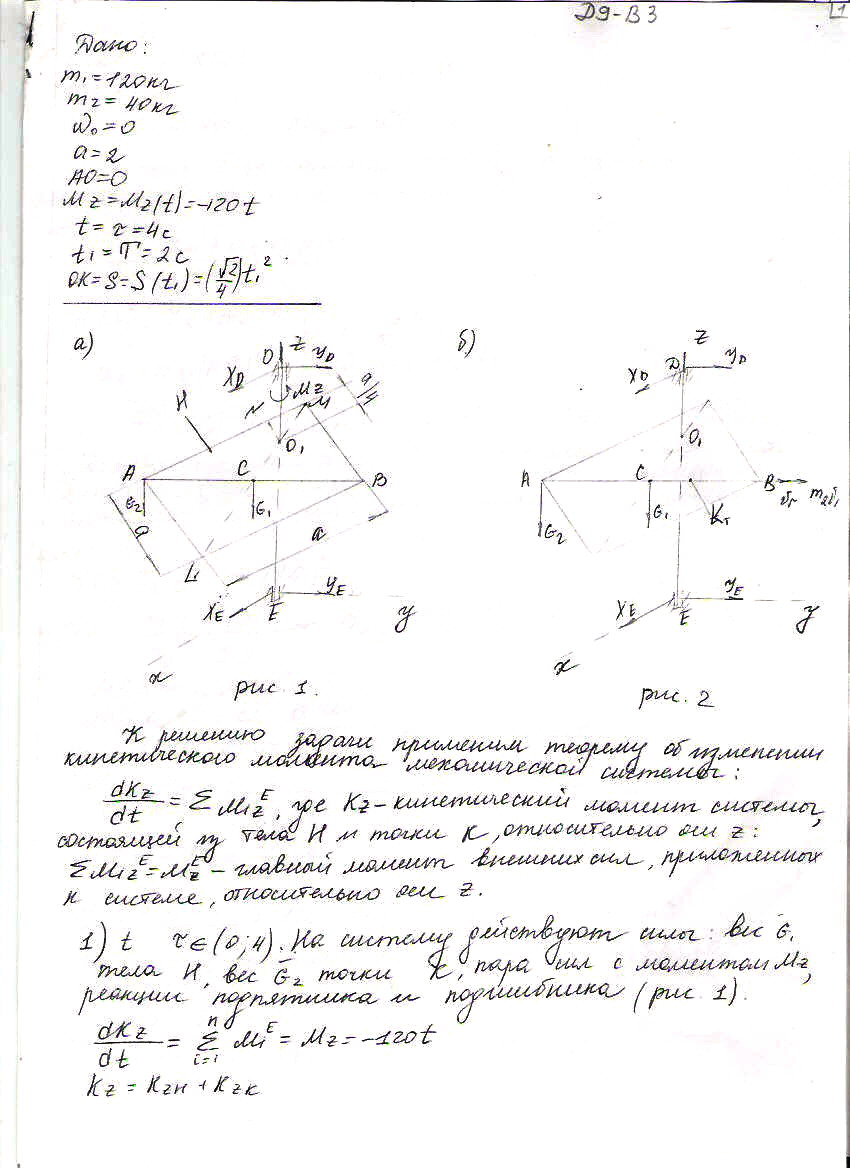 Д9-В3
1
Дано:
m₁=120кг
m₂=40кг
ω₀=0
a=2
AO=0
Mz=Mz(t)=-120t
t=τ=4с
t₁=T=2с
OK=S=S(t₁)=(√2/4)t₁²
а)
б)
D
Z
YD
XD
Mz
a/4
H
N
M
O₁
A
C
B
G₂
G₁
a
a
L₁
XE
E
YE
y
x
рис. 1.
Z
D
YD
XD
O₁
A
C
B
G₂
G₁
K
XE
E
YE
y
x
рис. 2
К решению задачи применим теорему об изменении
кинетического момента механической системы:
dKz/dt = ΣMizᴱ, где Kz-кинетический момент системы,
состоящей из тела Н и точки К, относительно оси z:
ΣMizᴱ=Mzᴱ – главный момент внешних сил, приложенных
к системе, относительно оси z.
1) t τ∈(0;4). На систему действуют силы: вес G₁
тела Н, вес G₂ точки К, пара сил с моментом Mz,
реакции подпятника и подшибника (рис. 1).
dKz/dt = Σ Miᴱ = Mz = -120t
Kz = Kzн + Kzк